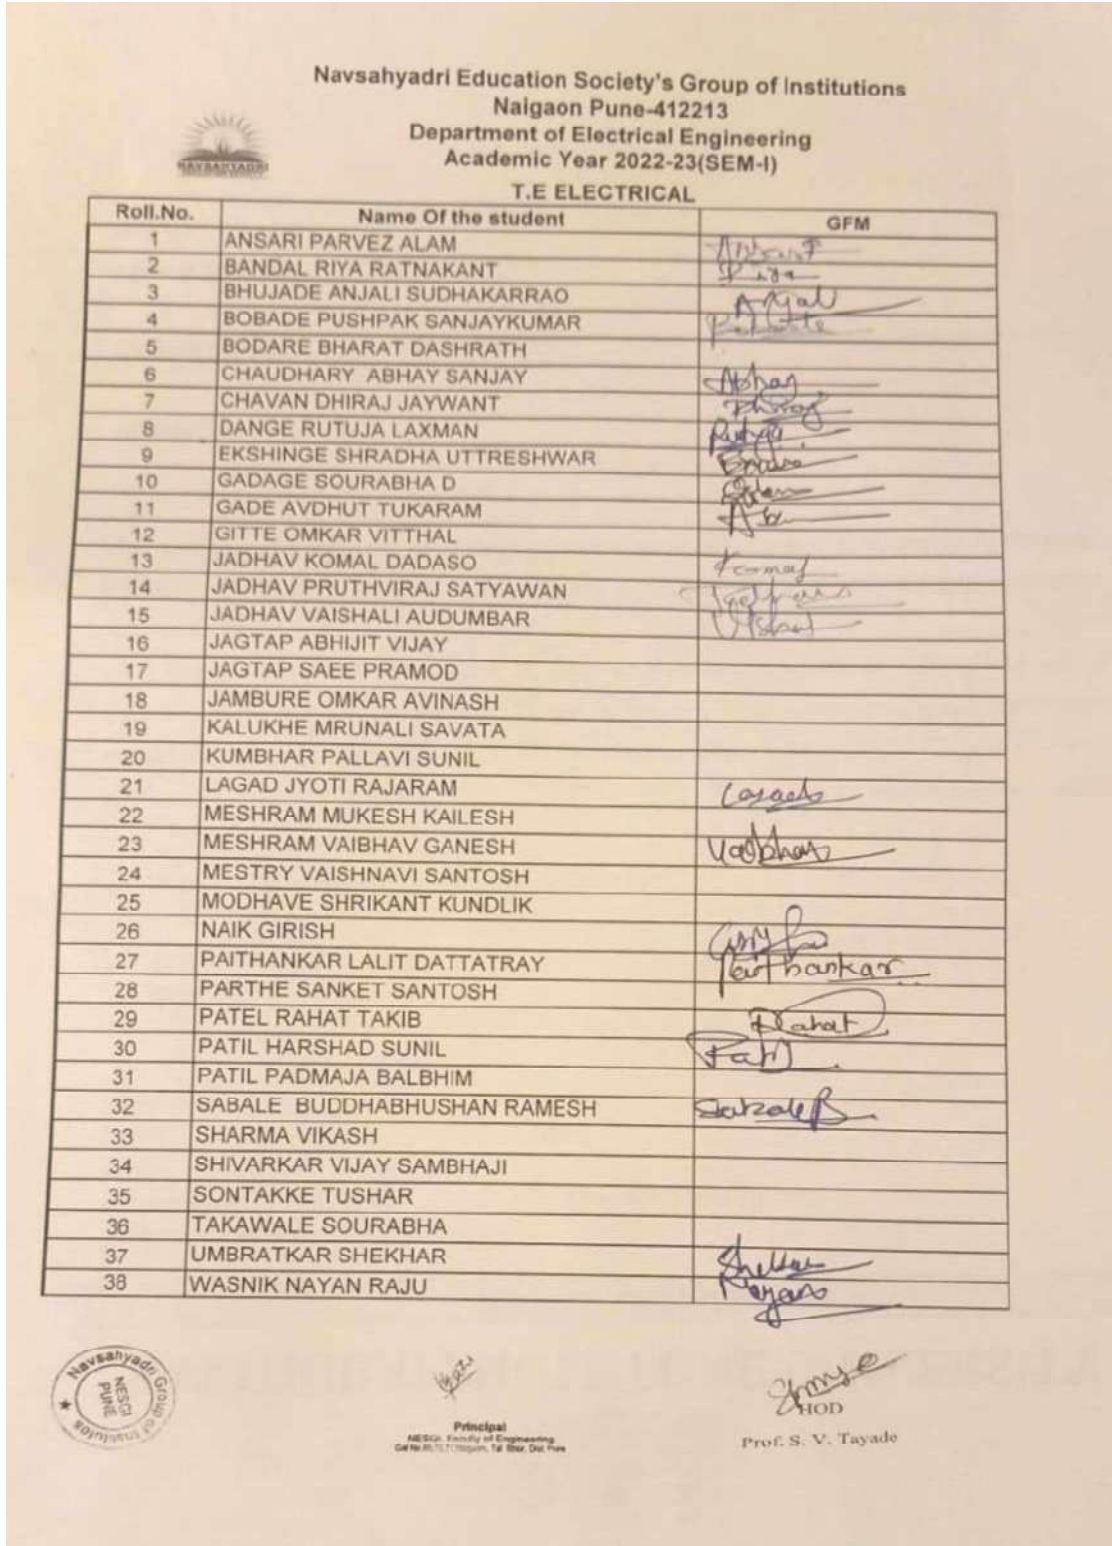 Navsahyadri Education Society's Group of Institutions
Naigaon Pune-412213
Department of Electrical Engineering
Academic Year 2022-23(SEM-I)
NAVSAHYADRI
T.E ELECTRICAL
Roll.No. Name Of the student GFM
1 ANSARI PARVEZ ALAM
2 BANDAL RIYA RATNAKANT Riya
3 BHUJADE ANJALI SUDHAKARRAO Anjali
4 BOBADE PUSHPAK SANJAYKUMAR
5 BODARE BHARAT DASHRATH
6 CHAUDHARY ABHAY SANJAY Abhay
7 CHAVAN DHIRAJ JAYWANT Dhiraj
8 DANGE RUTUJA LAXMAN Rutuja
9 EKSHINGE SHRADHA UTTRESHWAR
10 GADAGE SOURABHA D
11 GADE AVDHUT TUKARAM
12 GITTE OMKAR VITTHAL
13 JADHAV KOMAL DADASO Komal
14 JADHAV PRUTHVIRAJ SATYAWAN
15 JADHAV VAISHALI AUDUMBAR
16 JAGTAP ABHIJIT VIJAY
17 JAGTAP SAEE PRAMOD
18 JAMBURE OMKAR AVINASH
19 KALUKHE MRUNALI SAVATA
20 KUMBHAR PALLAVI SUNIL
21 LAGAD JYOTI RAJARAM Lagad
22 MESHRAM MUKESH KAILESH
23 MESHRAM VAIBHAV GANESH Vaibhav
24 MESTRY VAISHNAVI SANTOSH
25 MODHAVE SHRIKANT KUNDLIK
26 NAIK GIRISH
27 PAITHANKAR LALIT DATTATRAY Paithankar
28 PARTHE SANKET SANTOSH
29 PATEL RAHAT TAKIB Rahat
30 PATIL HARSHAD SUNIL Patil
31 PATIL PADMAJA BALBHIM
32 SABALE BUDDHABHUSHAN RAMESH Sabale B
33 SHARMA VIKASH
34 SHIVARKAR VIJAY SAMBHAJI
35 SONTAKKE TUSHAR
36 TAKAWALE SOURABHA
37 UMBRATKAR SHEKHAR Shekhar
38 WASNIK NAYAN RAJU Nayan
Navsahyadri Group of Institutes
NESGI
PUNE
Principal
NESGI, Faculty of Engineering
Naigaon, Tal. Bhor, Dist. Pune
HOD
Prof. S. V. Tayade